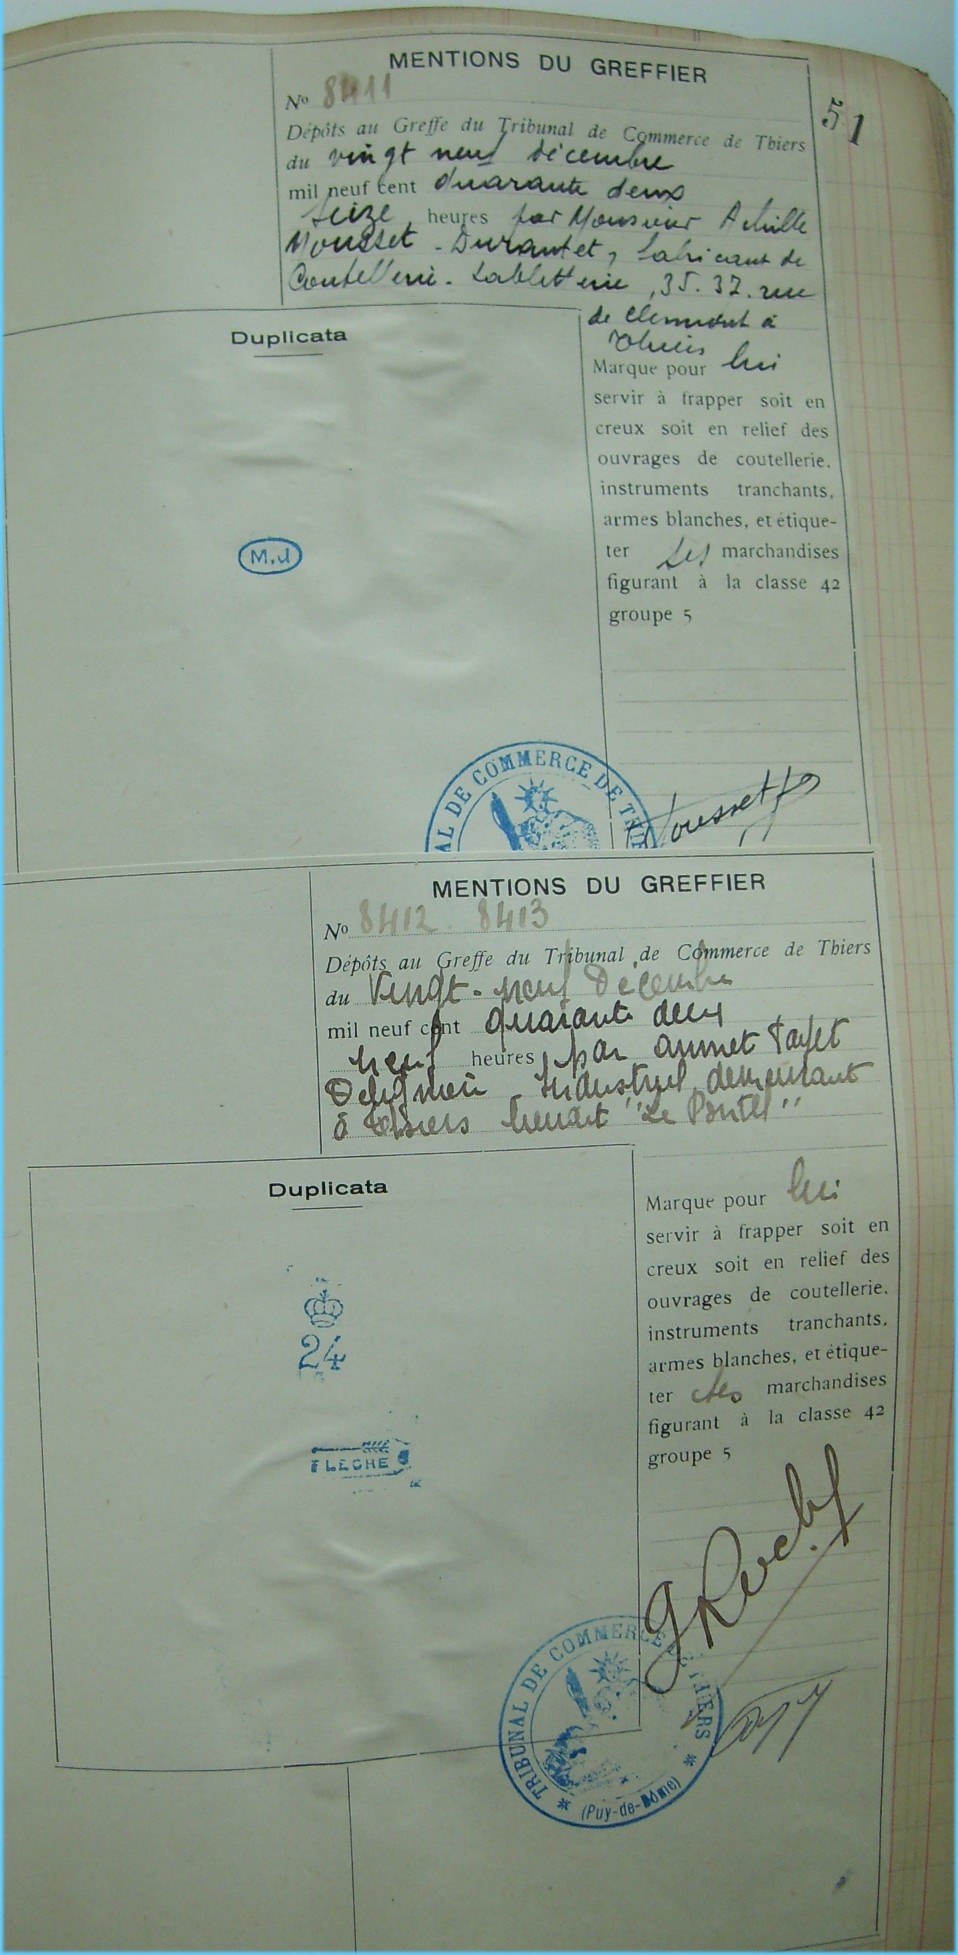 MENTIONS DU GREFFIER
51
No 8411
Dépôts au Greffe du Tribunal de Commerce de Thiers
du vingt neuf décembre
mil neuf cent quarante deux
seize heures par Monsieur Achille
Mousset-Durantet, fabricant de
Coutellerie. tabletterie, 35.37. rue
de Clermont à
Thiers
Duplicata
Marque pour lui
servir à frapper soit en
creux soit en relief des
ouvrages de coutellerie,
instruments tranchants,
armes blanches, et étique-
ter ses marchandises
figurant à la classe 42
groupe 5
M.J
AL DE COMMERCE DE THIER
Mousset
MENTIONS DU GREFFIER
No 8412. 8413
Dépôts au Greffe du Tribunal de Commerce de Thiers
du Vingt-neuf Décembre
mil neuf cent quarante deux
neuf heures par
Industriel demeurant
à Thiers "Le Pontel"
Duplicata
Marque pour lui
servir à frapper soit en
creux soit en relief des
ouvrages de coutellerie,
instruments tranchants,
armes blanches, et étique-
ter ses marchandises
figurant à la classe 42
groupe 5
24
FLECHE
TRIBUNAL DE COMMERCE DE THIERS
(Puy-de-Dôme)